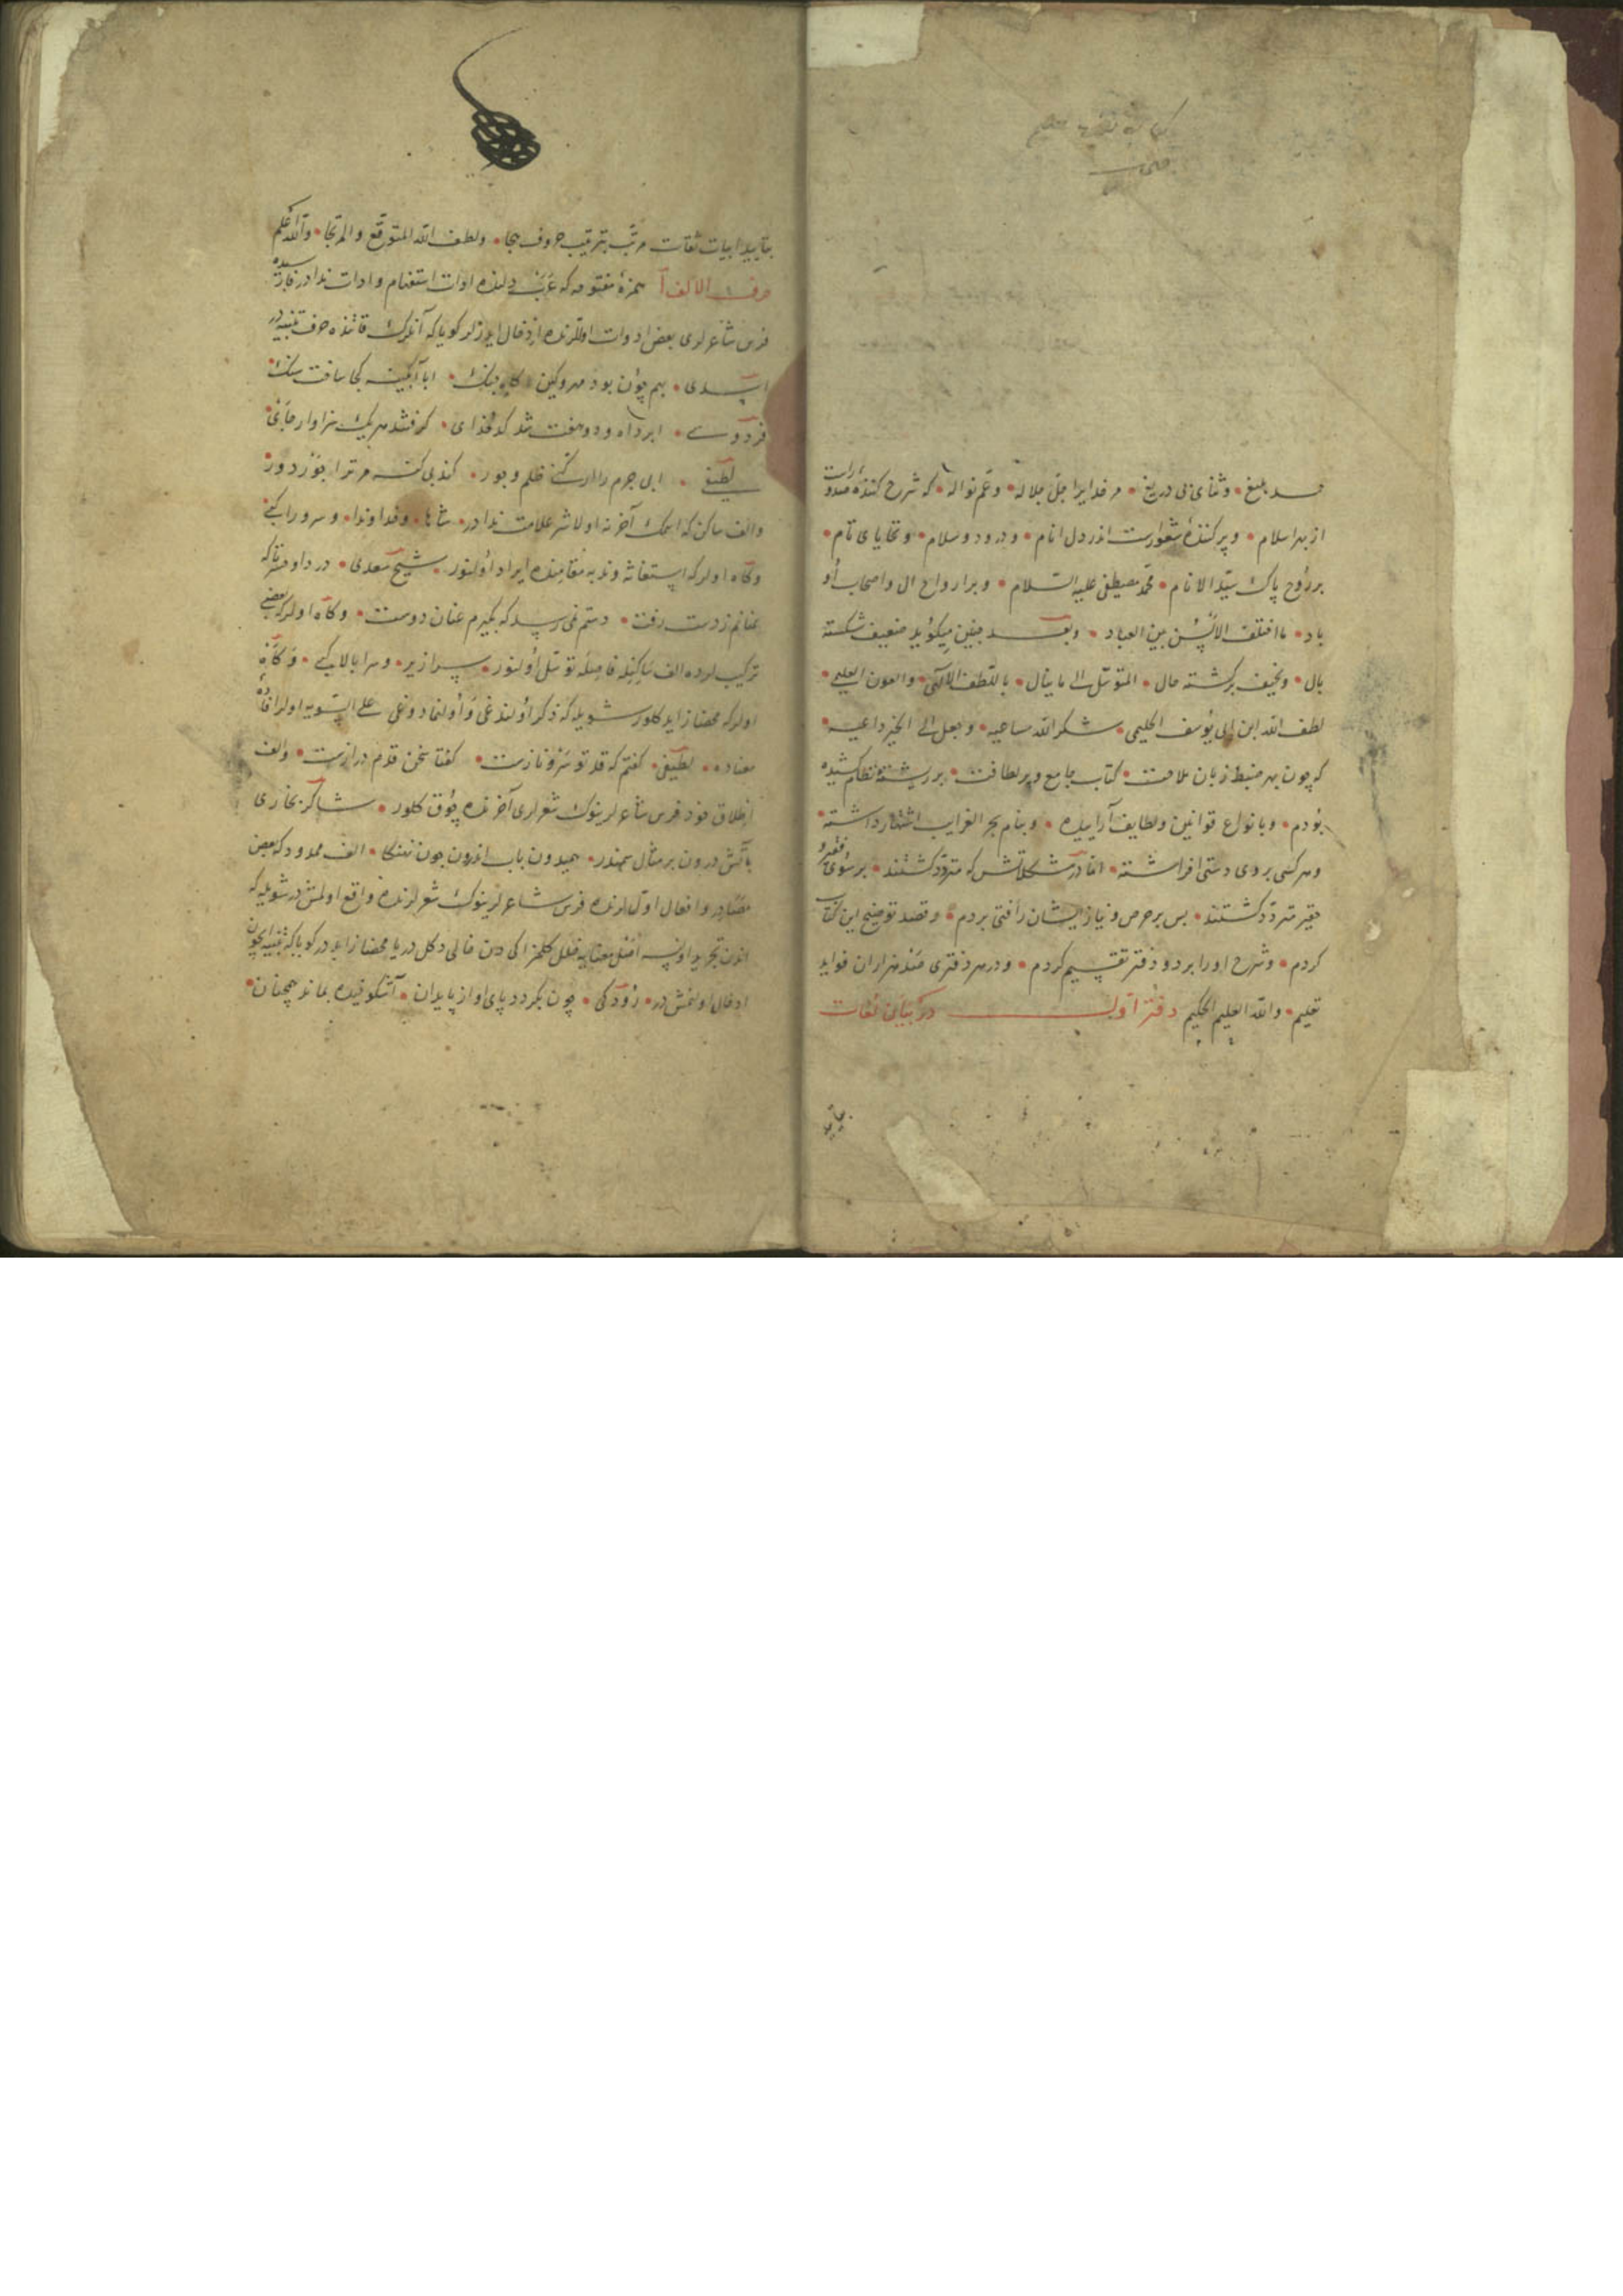 حمد بلیغ و ثنای بی دریغ مر خدایرا جل جلاله و عم نواله که شرح کننده صدورات
از بهر اسلام و پر کننده شعورست اندر دل انام و درود و سلام و تحایای تام
بر روح پاک سید الانام محمد مصطفی علیه السلام و بر ارواح ال و اصحاب او
باد ما اختلف الالسن بین العباد و بعد چنین میکوید ضعیف شکسته
بال و نحیف برکشته حال المتوسل الی ماینال باللطف الالهی والعون العلیمی
لطف الله ابن ابی یوسف الحلیمی شکر الله ساعیه و جعل الی الخیر داعیه
که چون بهر ضبط زبان ملاحت کتاب جامع و پر لطافت بر رشته نظام کشیده
بودم و بانواع قوانین و لطایف آراییده و بنام بحر الغرایب اشتهار داشته
و هر کسی بروی دستی افراشته اما در مشکلاتش که متردد کشتند بر سوی فقیر و
حقیر متردد کشتند بس بر حرص و نیاز ایشان رافتی بردم و قصد توضیح این کتاب
کردم و شرح اورا بر دو دفتر تقسیم کردم و در هر دفتری صد هزاران فواید
تعلیم والله العلیم الحکیم دفتر اول در بیان لغات
بتایید
بتایید ابیات ثقات مرتب بترتیب حروف هجا و لطف الله المتوقع والمرتجا والله اعلم
حرف الالف آ همزه مفتوحه که عربی دلنده ادات استفهام و ادات ندادر فارسیده
فرس شاعرلری بعض ادوات اوللرنده ادخال ایدرلر کویا که آنلرک قاتنده حرف تنبیه در
اسدی بهم چون بود مهر و کین کاه جنک ابا آبکینه کجا ساخت سنک
فردوسی ابر داه و دو هفت شد کدخدای کرفتند هر یک سزاوار جای
لطیفی ابی جرم را ار کنی ظلم و جور کند بی کنه مر ترا جوز دور
والف ساکن که اسمک آخرنه اولاشر علامت ندادر شاها و خداوندا و سرورا کبی
و کاه اولرکه استغاثه و ندبه مقامنده ایراد اولنور شیخ سعدی دردا و حسرتا که
عنانم ز دست رفت دستم نمی رسد که بکیرم عنان دوست و کاه اولرکه بعضی
ترکیبلرده الف ساکنله فاصله توسل اولنور سرازیر و سرابالا کبی و کاه
اولرکه محضا زاید کلور شویله که ذکر اولندغی و اولنمادوغی علی السویه اولر افاده
معناده لطیفی کفتم که قد تو سرو نازست کفتا سخن قدم درازست والف
اطلاق خود فرس شاعرلرینوک شعرلری آخرنده چوق کلور شاکر بخاری
بآتش درون بر مثال سمندر همیدون باب اندرون چون نهنکا الف ممدود که بعض
مصادر و افعال اوللرنده فرس شاعرلرینوک شعرلرنده واقع اولمش در شویله که
اندن تجرید اولنسه اصل معنایه خلل کلمز اکی دن خالی دکل در یا محضا زایددر کویا که تنبیه ایچون
ادخال اولنمش در رودکی چون بکردد پای او از پایدان آشکوفیده بماند همچنان